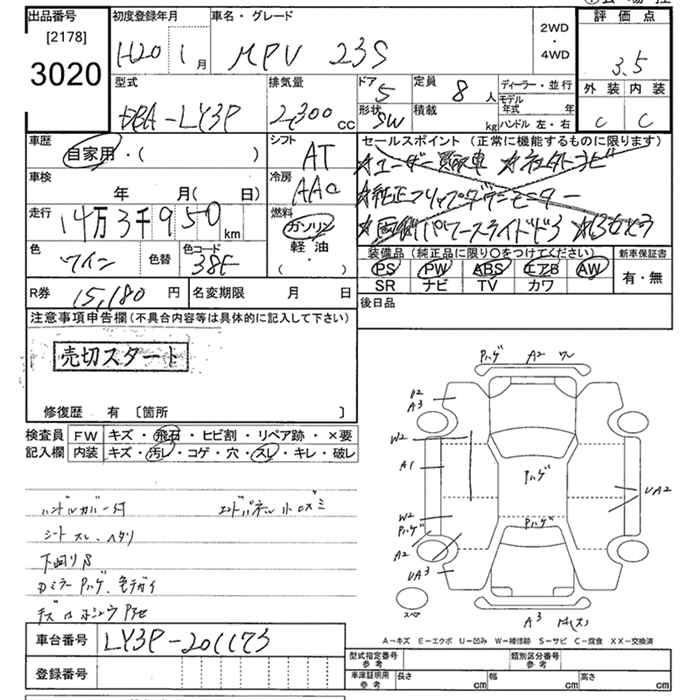 出品番号
[2178]
3020
初度登録年月
H20 1月
車名・グレード
MPV 23S
2WD
・
4WD
評価点
3.5
外装 内装
C C
型式
DBA-LY3P
排気量
2,300cc
ドア
5
形状
SW
定員
8人
積載
kg
ディーラー・並行
モデル年式 年
ハンドル 左・右
車歴
自家用・( )
シフト
AT
車検
年 月( 日)
冷房
AAC
走行
14万3千950km
燃料
ガソリン
軽・油
・( )
色
ワイン
色替
色コード
R券
15,180円
名変期限 月 日
セールスポイント(正常に機能するものに限ります)
☆ユーザー買取車
☆純正フリップダウンモニター
装備品(純正品に限り○をつけてください)
PS PW ABS エアB AW
SR ナビ TV カワ
新車保証書
有・無
後日品
注意事項申告欄(不具合内容等は具体的に記入して下さい)
売切スタート
修復歴 有 〔箇所 〕
検査員記入欄
FW キズ・飛石・ヒビ割・リペア跡・×要
内装 キズ・汚レ・コゲ・穴・スレ・キレ・破レ
ハンドルカバー付
エンドパネル小ヨゴミ
シートスレ、ヘタリ
下回りS
Dミラーハゲ、色チガイ
ハゲ A2 ワレ
A3
W2
A1
ハゲ
UA2
W2
ハゲ
ハゲ
A2
UA3
スペア
A3
A-キズ E-エクボ U-凹み W-補修跡 S-サビ C-腐食 XX-交換済
車台番号
LY3P-201173
登録番号
型式指定番号 参考
類別区分番号 参考
車庫証明用 参考
長さ cm
幅 cm
高さ cm